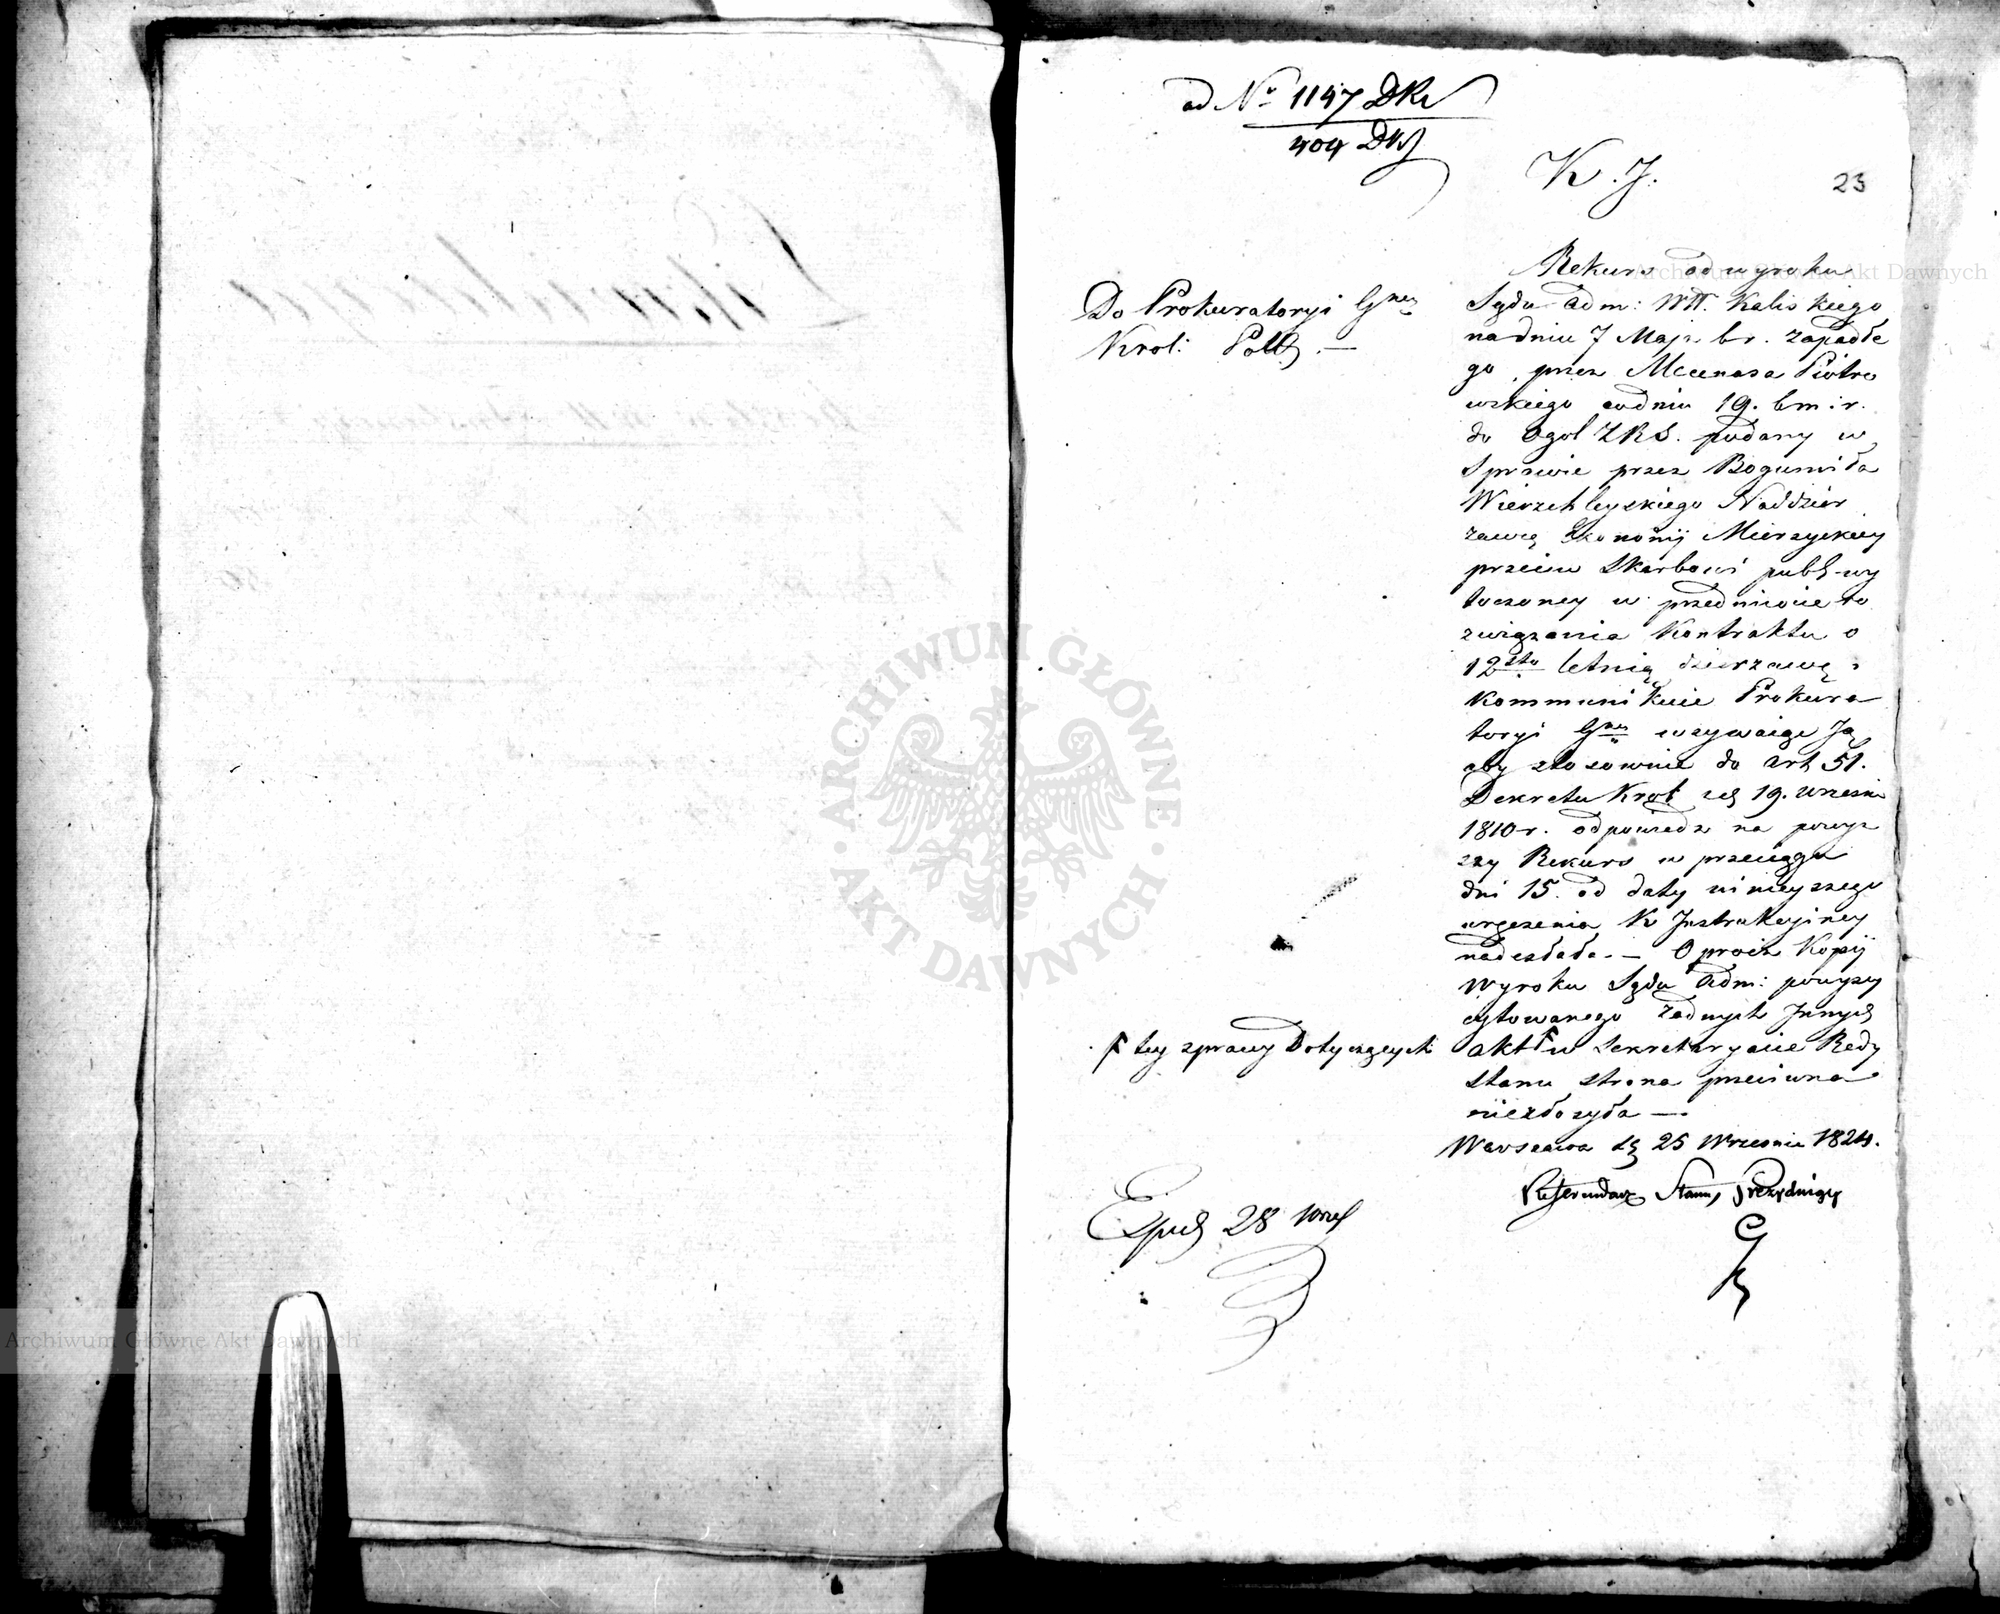 ad Nr 1147 DKr
404 DKJ
K. J.
23
Do Prokuratoryi Gney
Krol: Polo. —
Rekurs od wyroku
Sądu Adm: WK. Kaliskiego
na dniu 7 Maja b r. zapadłe
go, przez Mecenasa Piotro
wskiego w dniu 19. b m: r.
do Ogol ZRS. podany w
Sprawie przez Bogumiła
Wierzchleyskiego Naddzier
żawcę Ekonomij Mierzyckiey
przeciw Skarbowi publ. wy
toczoney w przedmiocie ro
związania Kontraktu o
12sto letnią dzierzawę,
kommunikuie Prokura
toryi Gney wzywaiąc Ją
aby stosownie do art 51.
Dekretu Krol: z d 19. Wrześn
1810 r. odpowiedz na powyż
szy Rekurs w przeciągu
dni 15. od daty ninieyszego
wręczenia K Instrukcyiney
nadesłała. — Oprócz Kopij
Wyroku Sądu Adm: powyżey
cytowanego żadnych Innych
aktów Ⱶ w Sekretaryacie Rady
Stanu strona przeciwna
niezłożyła —.
Ⱶ tey sprawy Dotyczących
Warszawa d 25 Wrześnie 1824.
Referendarz Stanu, Prezyduiący
Exped 28 Wrześ
ARCHIWUM GŁÓWNE
AKT DAWNYCH
Archiwum Główne Akt Dawnych
Archiwum Główne Akt Dawnych